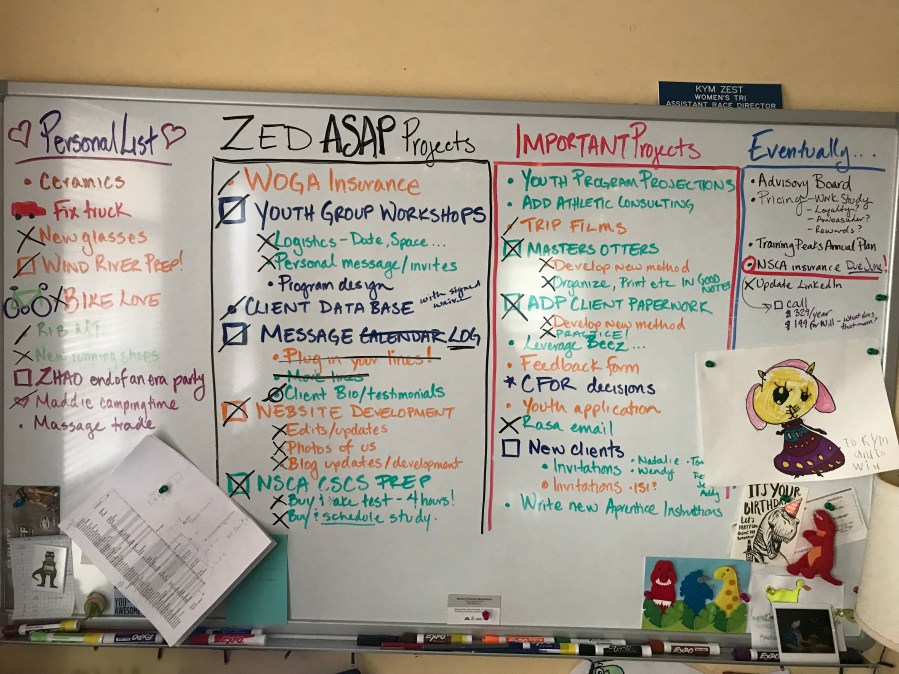 KYM ZEST
WOMEN'S TRI
ASSISTANT RACE DIRECTOR
Personal List
• Ceramics
Fix truck
New glasses
WIND RIVER PREP!
BIKE LOVE
New running shoes
ZHAO end of an era party
Maddie camping time
• Massage trade
ZED ASAP Projects
WOGA Insurance
YOUTH GROUP WORKSHOPS
Logistics - Date, Space ...
Personal message/invites
• Program design
CLIENT DATA BASE with signed
waiver
MESSAGE CALENDAR LOG
• Plug in your lines!
• More lines
Client Bio/testimonials
WEBSITE DEVELOPMENT
Edits/updates
Photos of us
Blog updates/development
NSCA CSCS PREP
Buy & take test - 4 hours!
Buy & schedule study.
IMPORTANT Projects
• YOUTH PROGRAM PROJECTIONS
• ADD ATHLETIC CONSULTING
TRIP FILMS
MASTERS OTTERS
Develop new method
Organize, Print etc. IN GOOD
NOTES!
ADP CLIENT PAPERWORK
Develop new method
PRACTICE!
• Leverage Beez ...
• Feedback form
* CFOR decisions
• Youth application
Rasa email
New clients
• Invitations • Natalie
• Wendy
• Invitations • ISI?
• Write new Aprentice Instructions
Eventually...
• Advisory Board
• Pricing - Work Study
- Loyalty?
- Ambassador?
- Rewards?
• Training Peaks Annual Plan
NSCA insurance Due June!
Update LinkedIn
call
$329/year
$199 for Will - What does
that mean?
TO KYM
and to
Will
IT'S YOUR
BIRTHDAY
YOU
AWESOME
EXPO
EXPO
EXPO
EXPO
EXPO